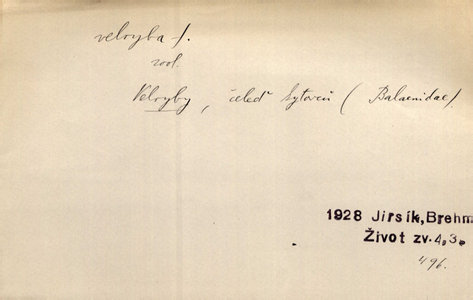 velryba f.
zool.
Velryby, čeleď kytovců (Balaenidae).
1928 Jirsík, Brehm
Život zv. 4, 3.
496.